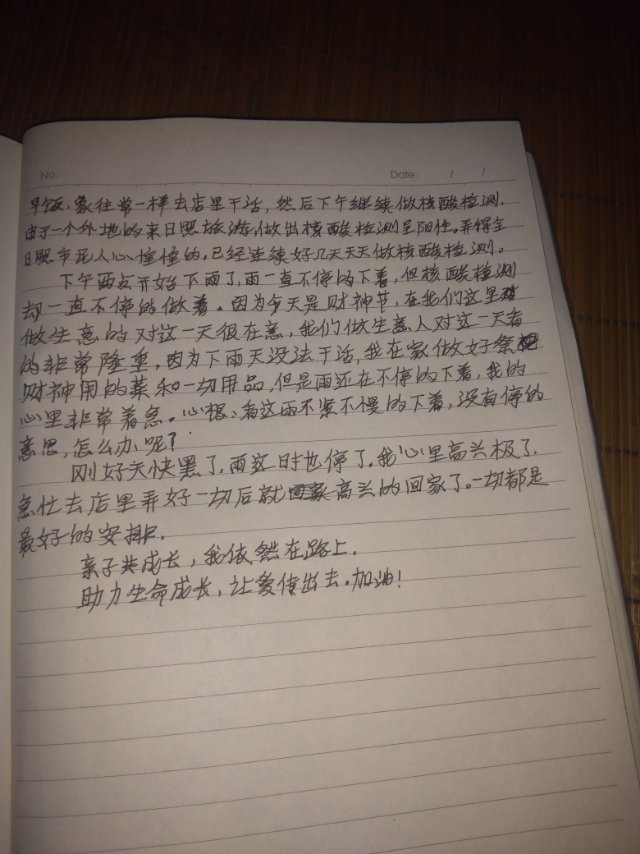 No.
Date. / /
早饭、象往常一样去店里干活，然后下午继续做核酸检测.
由于一个外地的来日照旅游做出核酸检测呈阳性。弄得全
日照市民人心惶惶的，已经连续好几天天天做核酸检测。
下午两点开始下雨了，雨一直不停的下着，但核酸检测
却一直不停的做着。因为今天是财神节，在我们这里
做生意的对这一天很在意，我们做生意人对这一天看
的非常隆重，因为下雨天没法干活，我在家做好祭
财神用的菜和一切用品，但是雨还在不停的下着，我的
心里非常着急。心想：看这雨不紧不慢的下着，没有停的
意思，怎么办呢？
刚好天快黑了，雨这时也停了。我心里高兴极了.
急忙去店里弄好一切后就高兴的回家了。一切都是
最好的安排.
亲子共成长，我依然在路上.
助力生命成长，让爱传出去。加油！